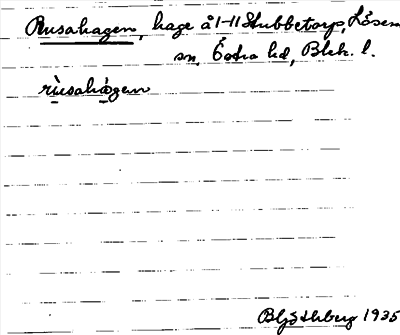 Rusahagen, hage å 1-11 Stubbetorp, Lösen
sn, Östra hd, Blek. l.
rùsahàgen
1935